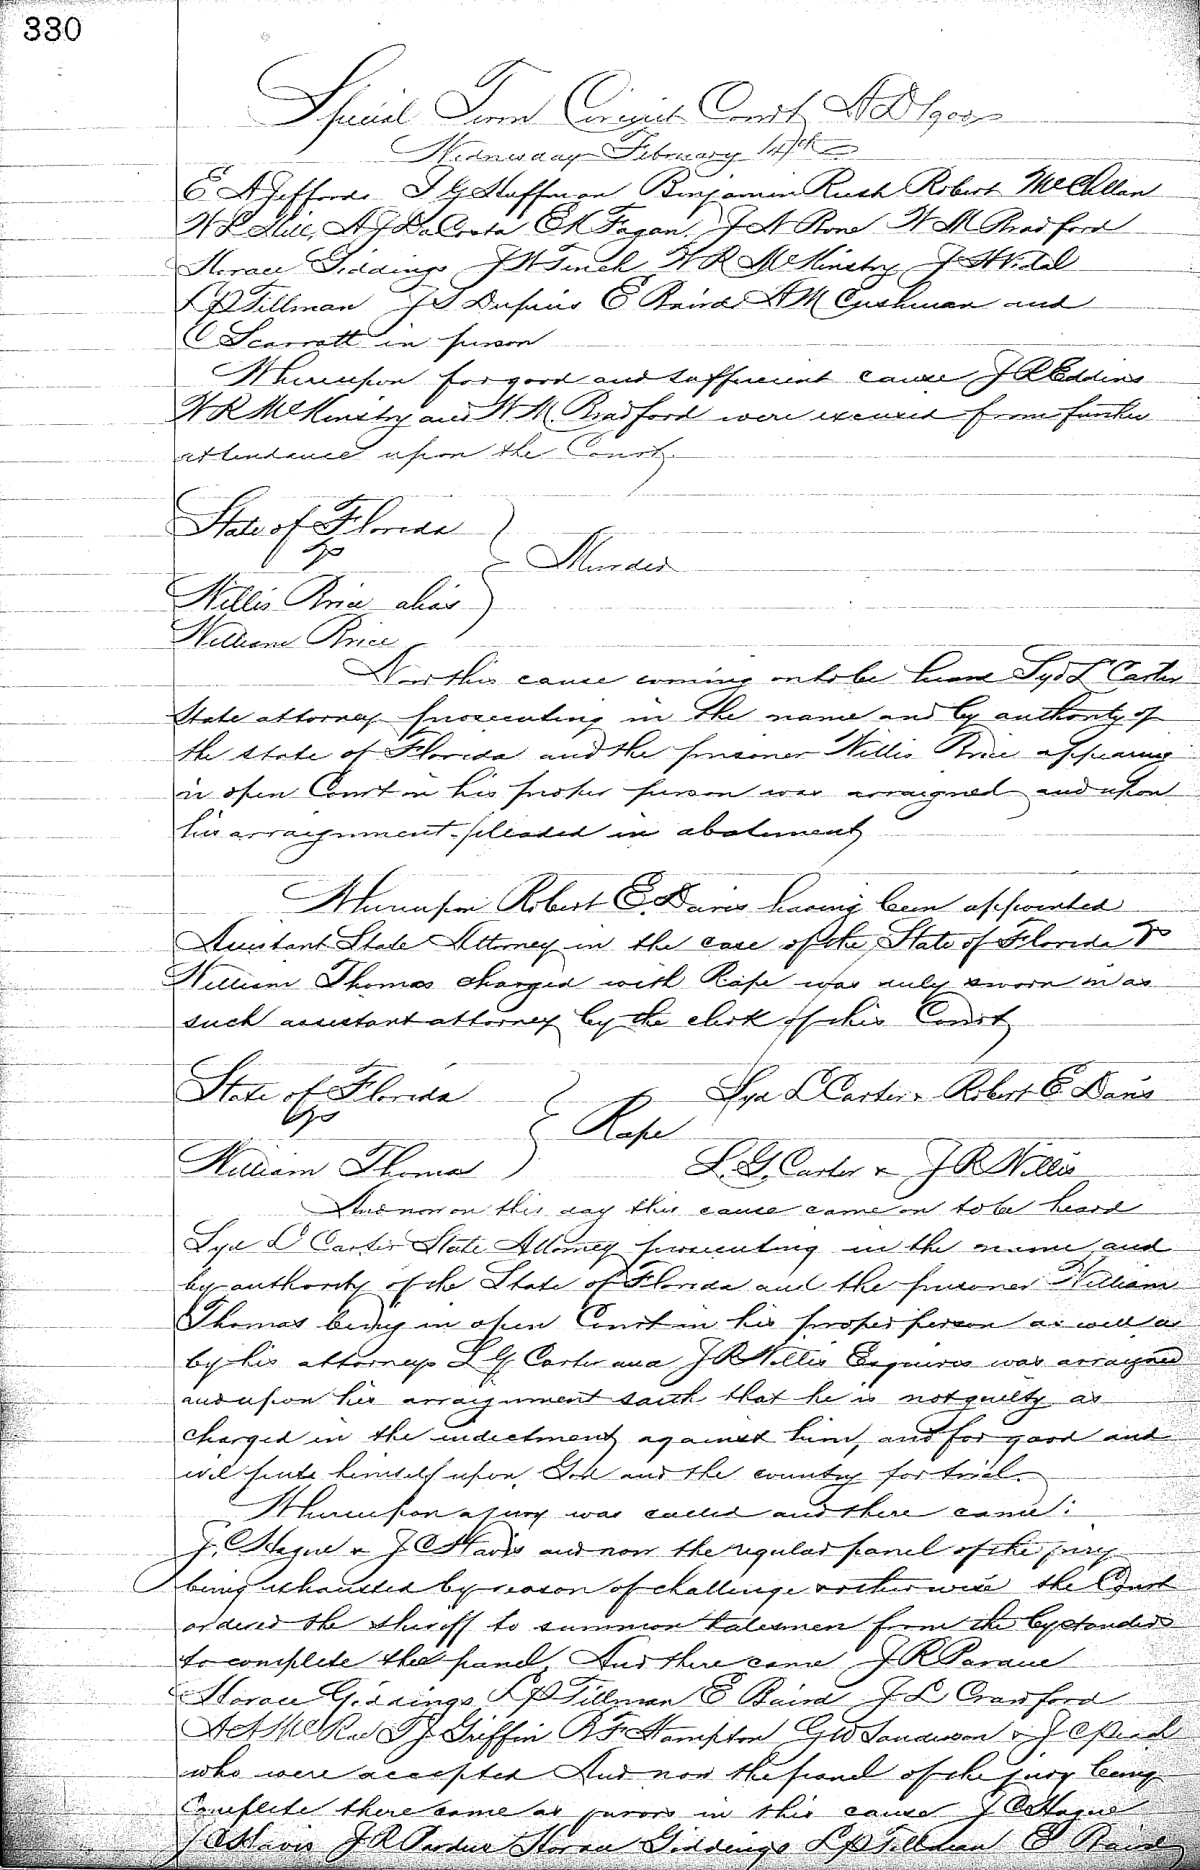 330
Special Term Circuit Court A D 1900
Wednesday February 14th
E A Jeffords I G Hoffman Benjamin Rush Robert McClellan
W L Hill, A J DaCosta E M Fagan, J N Stone W M Bradford
Horace Giddings J W Tench W R McKinstry J H Vidal
L P Tillman J S Dupuis E Baird A M Cushman and
C Scarratt in person
Whereupon for good and sufficient cause J R Eddins
W R McKinstry and W M Bradford were excused from further
attendance upon the Court.
State of Florida
vs
Murder
Willis Price alias
William Price
Now this cause coming on to be heard Syd L Carter
State attorney prosecuting in the name and by authority of
the state of Florida and the prisoner Willis Price appearing
in open Court in his proper person was arraigned and upon
his arraignment pleaded in abatement
Whereupon Robert E. Davis having been appointed
Assistant State Attorney in the case of the State of Florida vs
William Thomas charged with Rape was duly sworn in as
such assistant attorney by the clerk of this Court
State of Florida Syd L Carter & Robert E Davis
vs
Rape
William Thomas L. G. Carter & J R Willis
And now on this day this cause came on to be heard
Syd L Carter State Attorney prosecuting in the name and
by authority of the State of Florida and the prisoner William
Thomas being in open Court in his proper person as well as
by his attorneys L G Carter and J R Willis Esquires was arraigned
and upon his arraignment saith that he is not guilty as
charged in the indictment against him, and for good and
ivel puts himself upon God and the country for trial.
Whereupon a jury was called and there came:
J. C Hague & J C Mavis and now the regular panel of the jury
being exhausted by reason of challenge & otherwise the Court
ordered the sheriff to summon talesmen from the bystanders
to complete the panel, And there came J R Pardue
Horace Giddings L P Tillman E Baird J L Crawford
A McRae T J Griffin B F Hampton G W Sanderson & J C
who were accepted And now the panel of the jury being
complete there came as jurors in this cause J C Hague
J C Mavis J R Pardue Horace Giddings L P Tillman E Baird